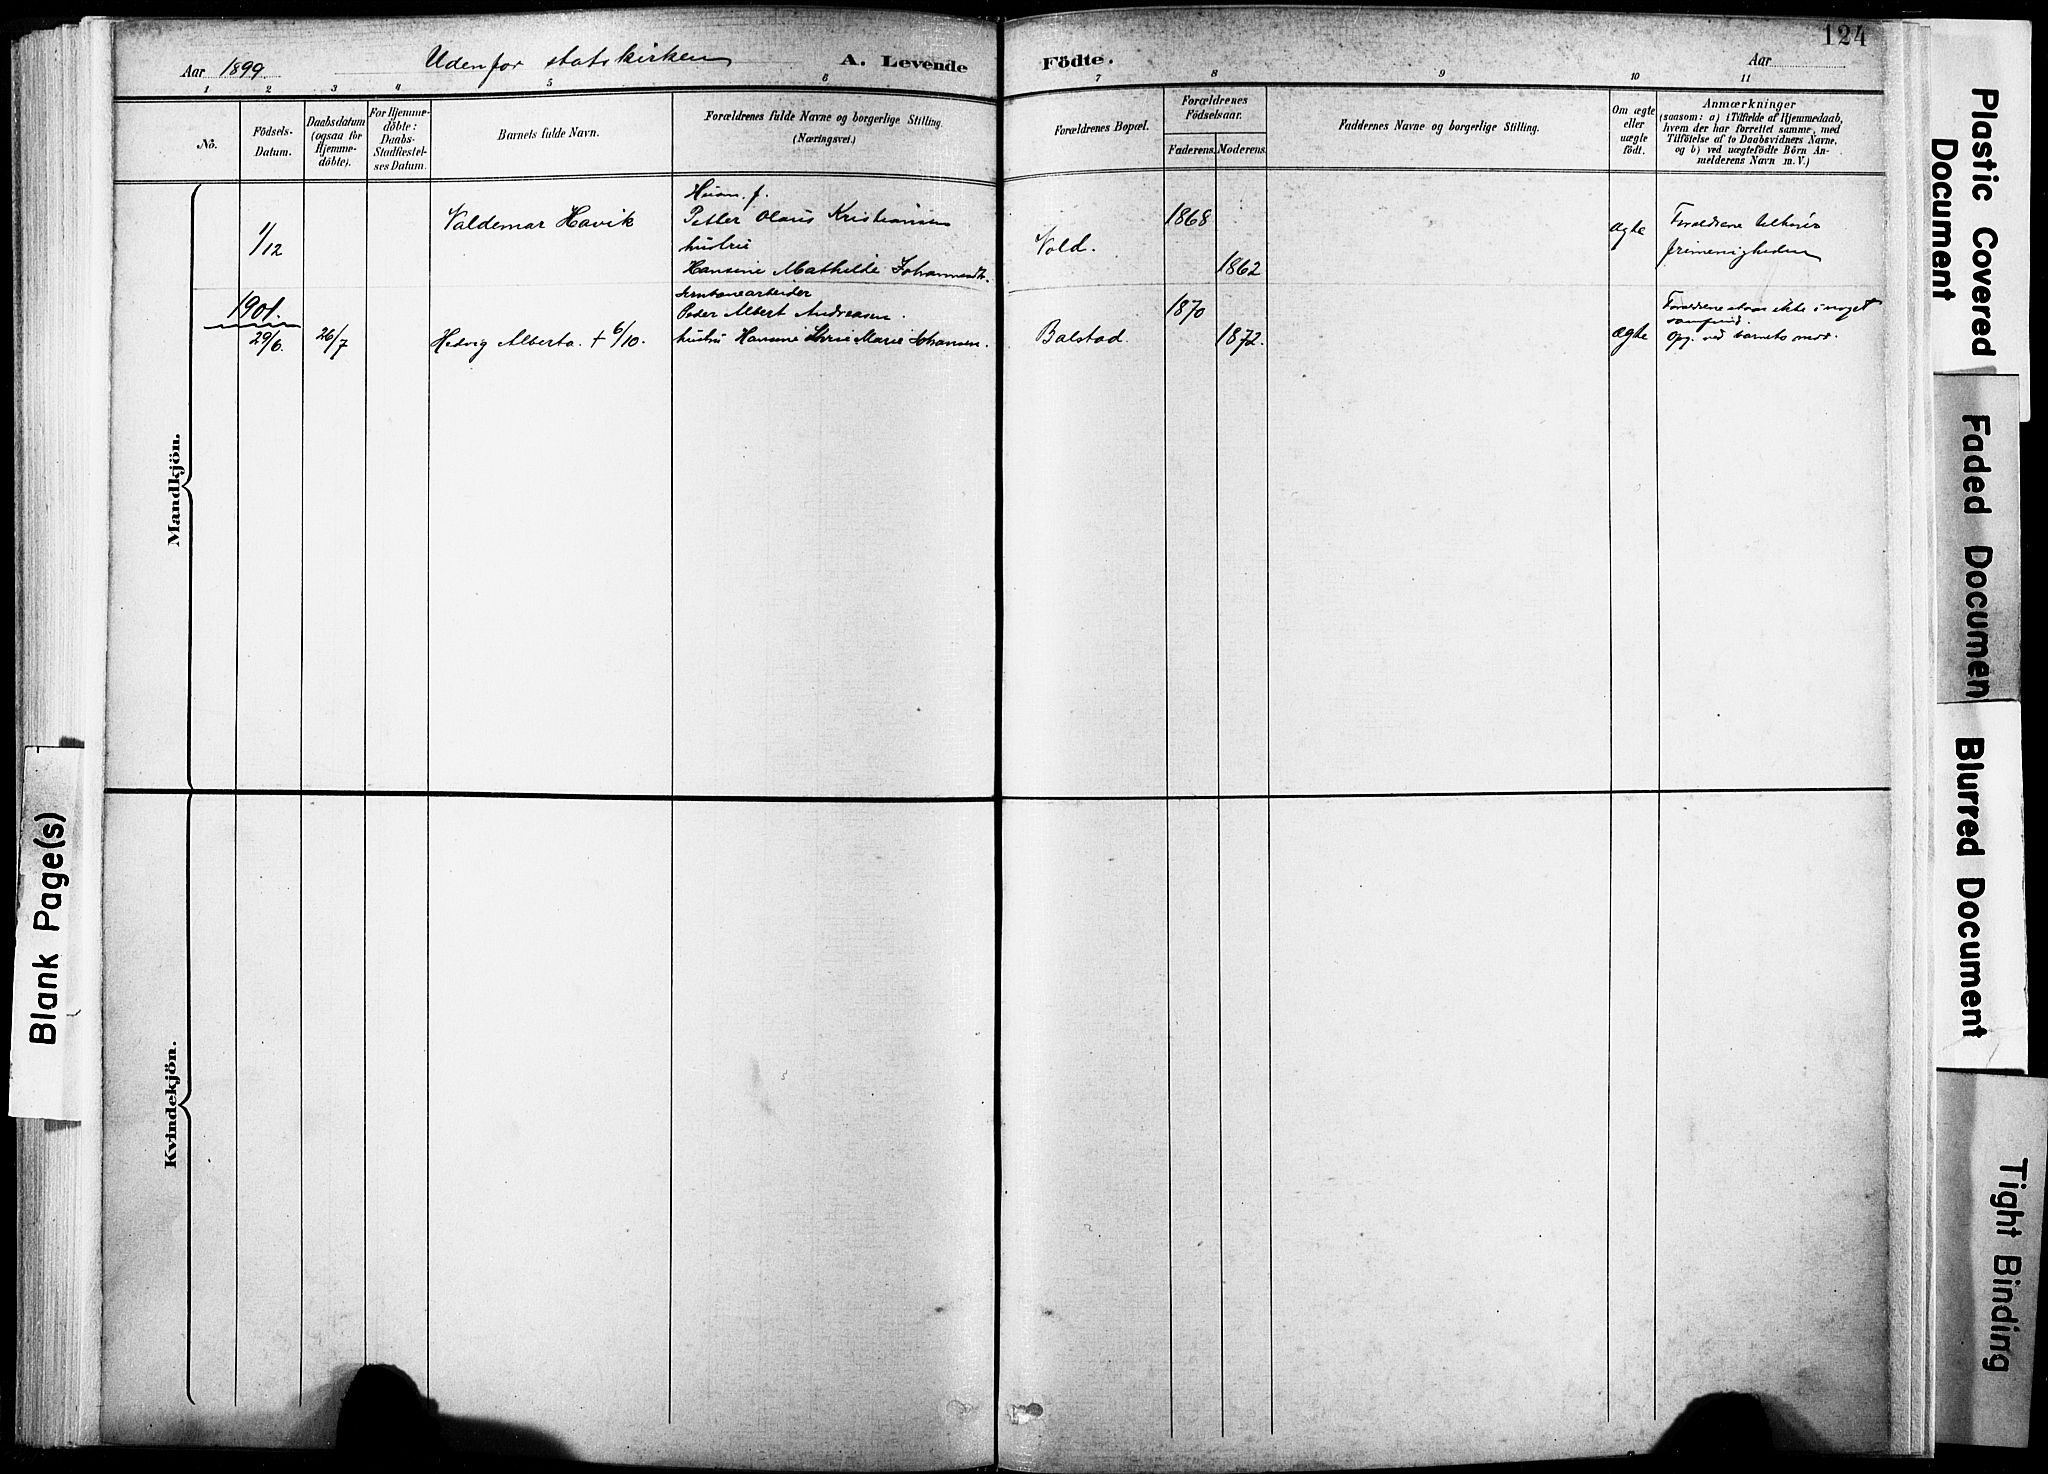 124
Aar 1899. Udenfor statskirken A. Levende Födte. Aar
1 2 3 4 5 6 7 8 9 10 11
No.
Födsels-
Datum.
Daabsdatum
(ogsaa for
Hjemme-
döbte).
For Hjemme-
döbte:
Daabs-
Stadfæstel-
ses Datum.
Barnets fulde Navn.
Forældrenes fulde Navne og borgerlige Stilling.
(Næringsvei.)
Forældrenes Bopæl.
Forældrenes
Födselsaar.
Faderens. Moderens.
Faddernes Navne og borgerlige Stilling.
Om ægte
eller
uægte
födt.
Anmærkninger
(saasom: a) i Tilfælde af Hjemmedaab,
hvem der har forrettet samme, med
Tilföielse af to Daabsvidners Navne,
og b) ved uægtefödte Börn An-
melderens Navn m.V.)
Mandkjön.
1/12
Valdemar Havik
Husm. f.
Petter Olaus Kristiansen
hustru
Hansine Mathilde Johannesdtr.
Vold.
1868
1862
ægte
Forældrene tilhører
frimenigheden
1901.
29/6. 26/7
Hedvig Alberta. + 6/10.
Peder Albert Andreasen.
hustru Hansine Marie Johansen.
Balstad.
1870
1872.
ægte
Forældrene staar ikke i noget
samfund.
Opg. ved barnets mor.
Kvindekjön.
Blank Page(s)
Plastic Covered
Document
Faded Documen
Blurred Document
Tight Binding